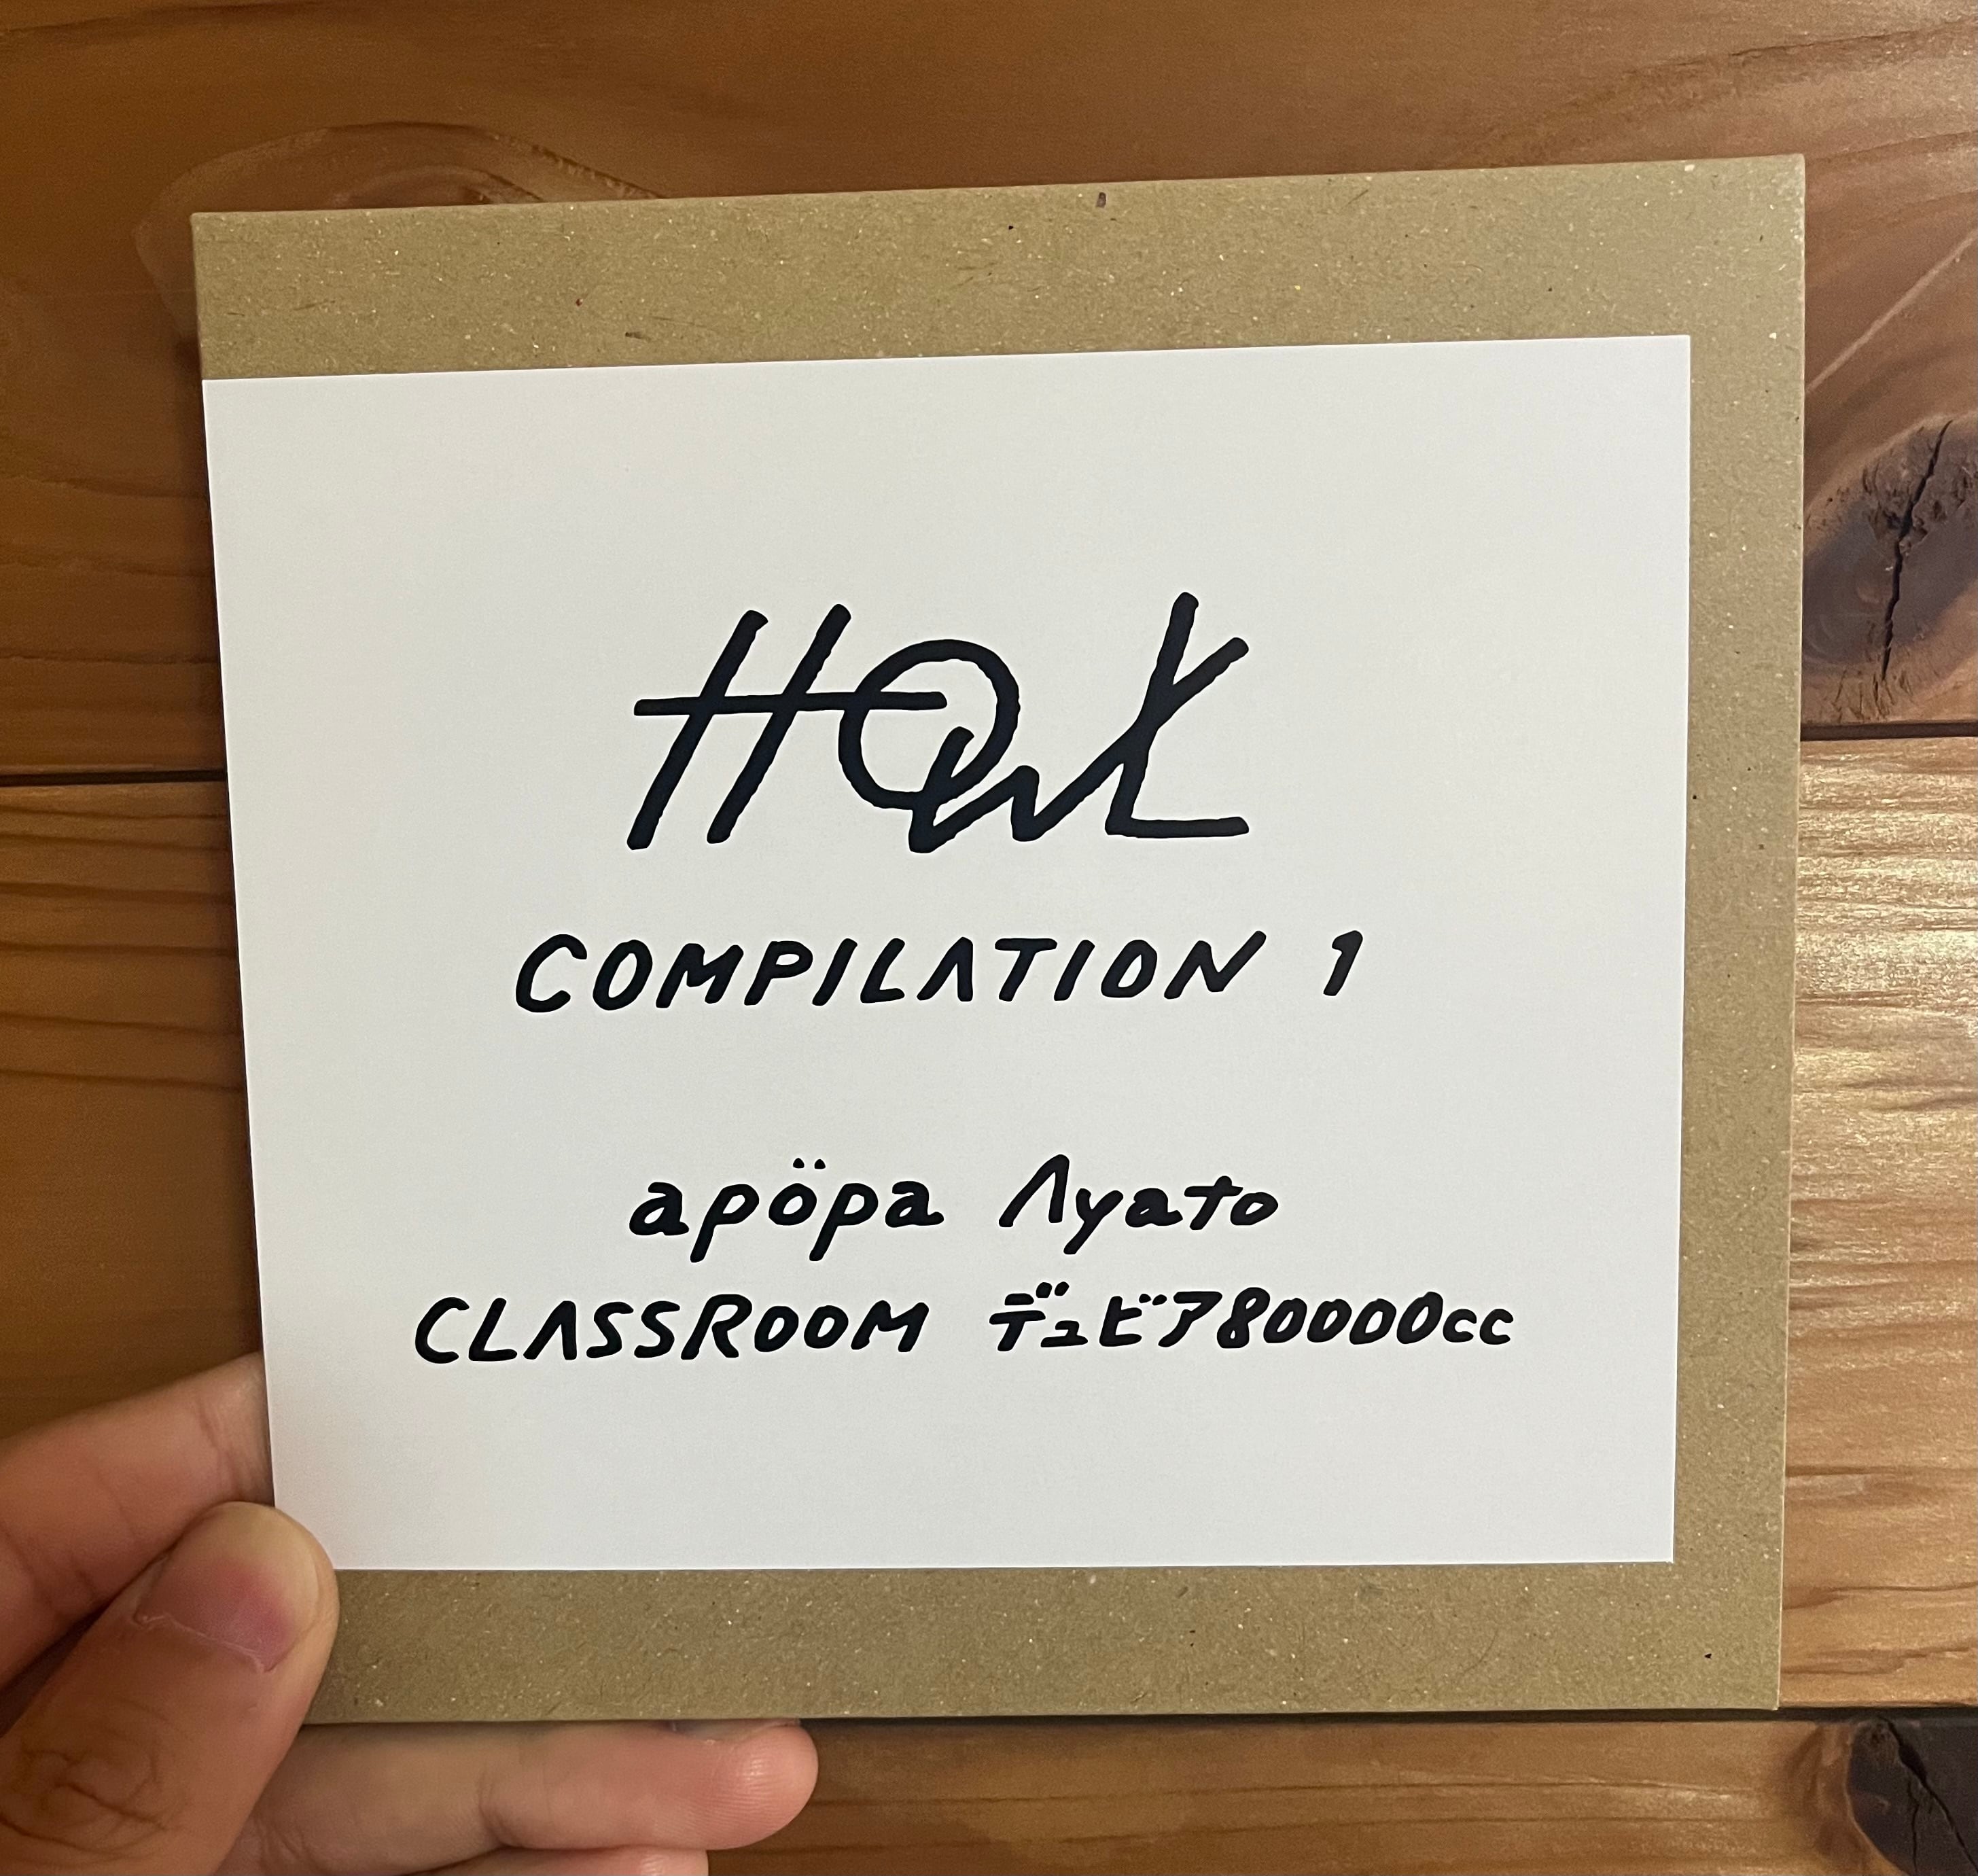 COMPILATION 1
apöpa Ayato
CLASSROOM デュビア80000cc